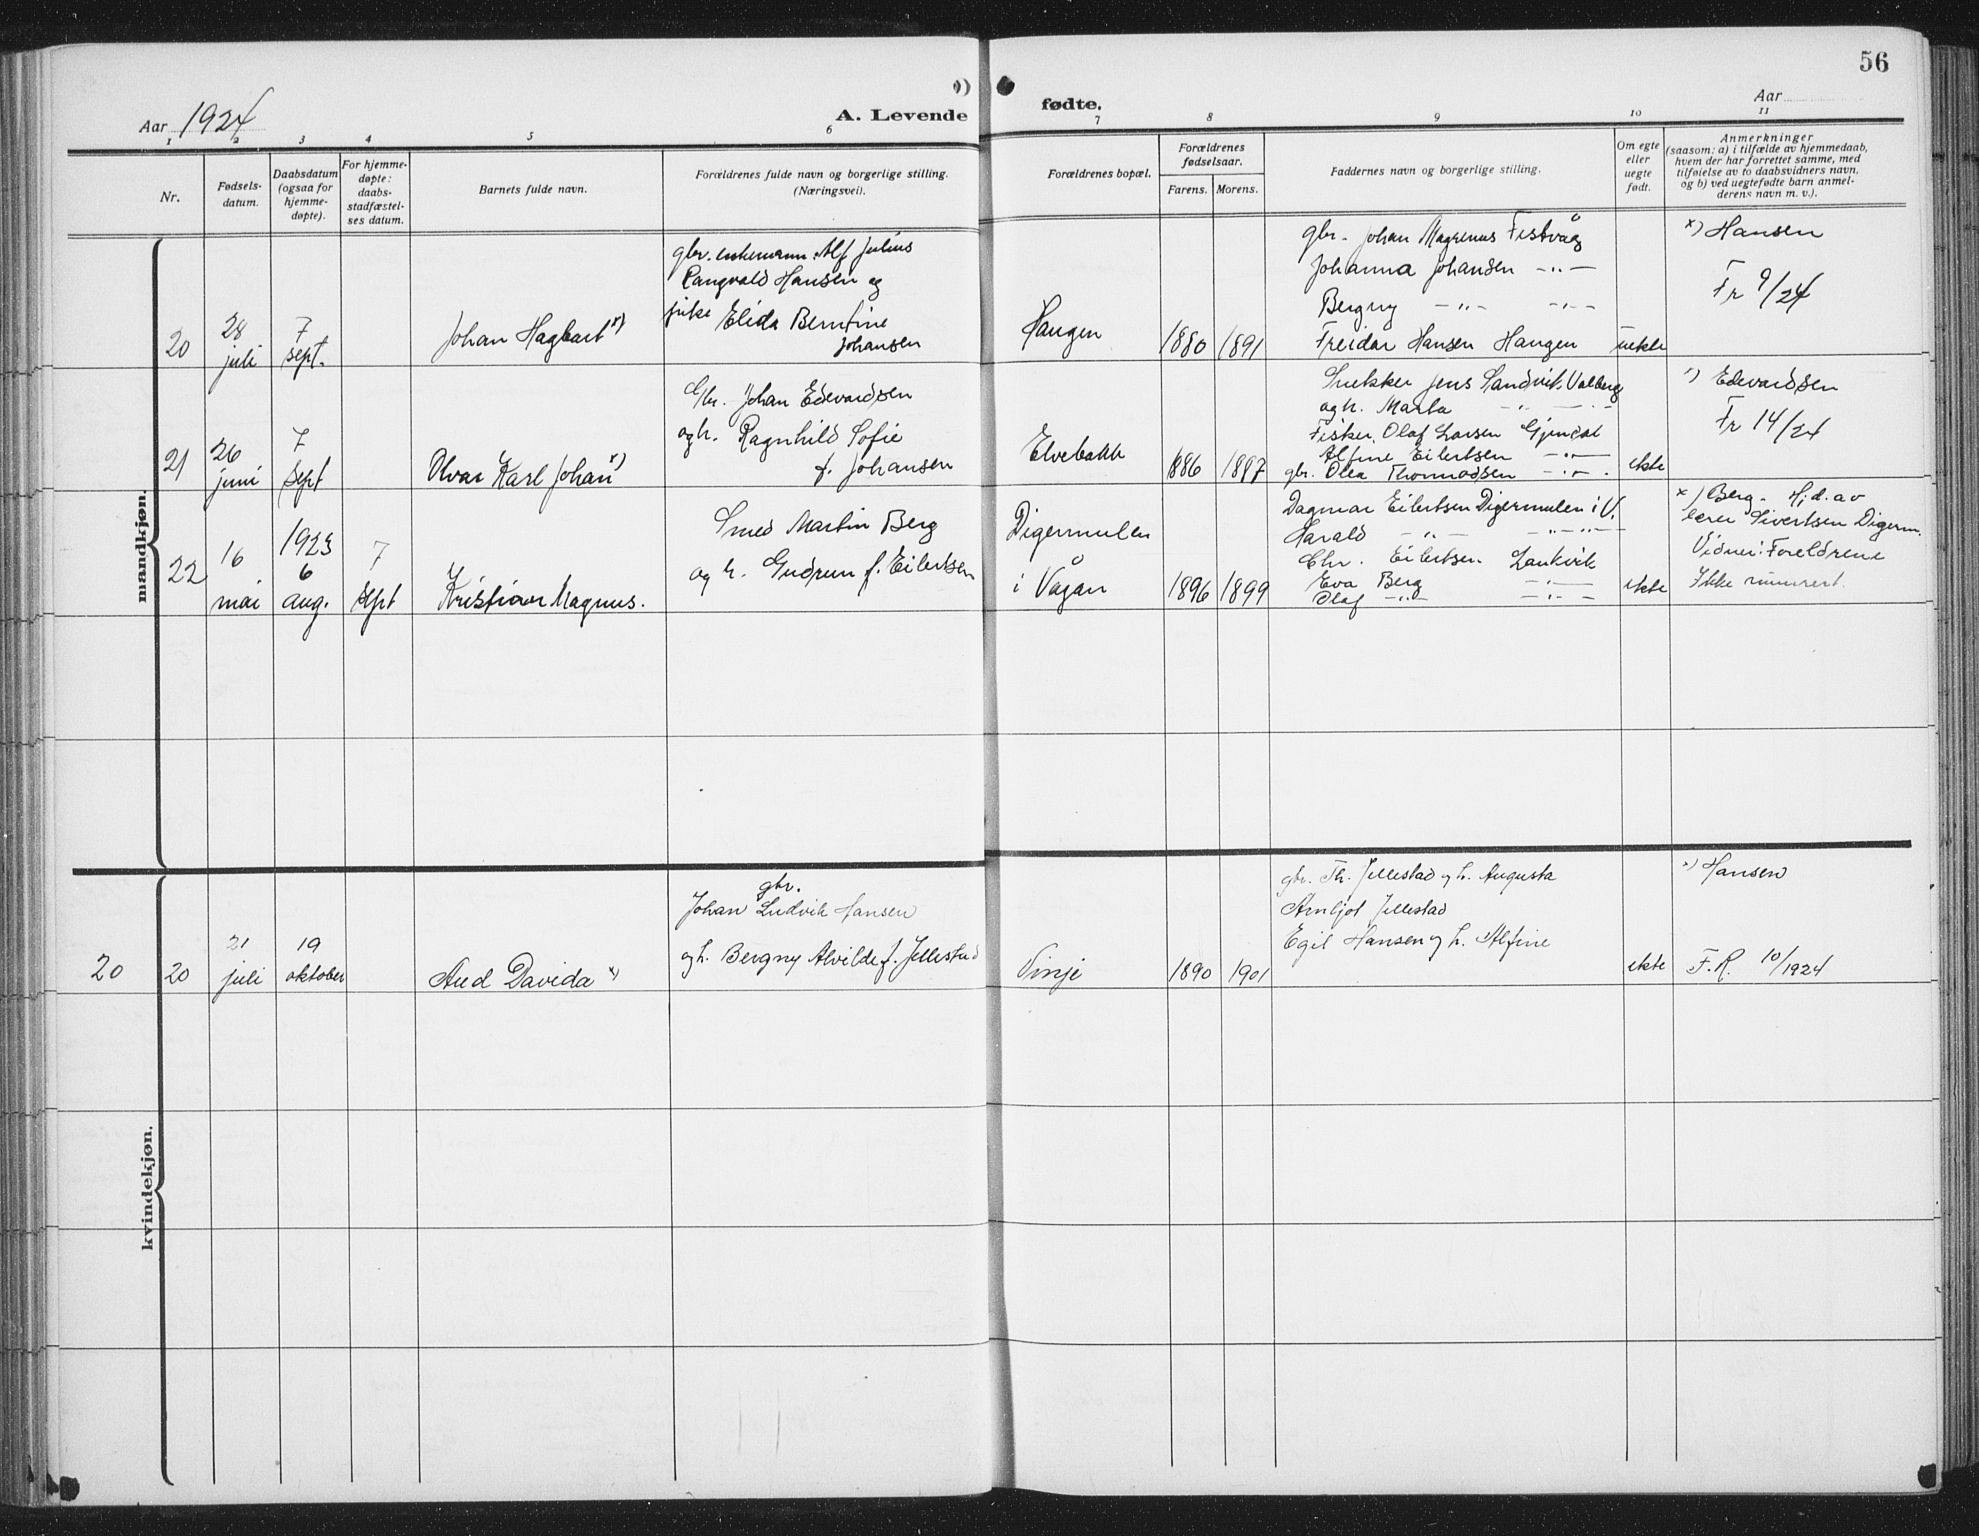 56
Aar 1924
A. Levende
fødte.
Aar
1 2 3 4 5 6 7 8 9 10 11
Nr.
Fødsels-
datum.
Daabsdatum
(ogsaa for
hjemme-
døpte).
For hjemme-
døpte:
daabs-
stadfæstel-
ses datum.
Barnets fulde navn.
Forældrenes fulde navn og borgerlige stilling.
(Næringsvei).
Forældrenes bopæl.
Forældrenes
fødselsaar.
Farens. Morens.
Faddernes navn og borgerlige stilling.
Om egte
eller
uegte
født.
Anmerkninger
(saasom: a) i tilfælde av hjemmedaab,
hvem der har forrettet samme, med
tilføielse av to daabsvidners navn,
og b) ved uegtefødte barn anmel-
derens navn m. v.).
mandkjøn.
20
28
juli
7
sept.
Johan Hagbart x)
gbr. enkemann Alf Julius
Rangvald Hansen og
pike Elida Berntine
Johansen
Haugen
1880 1891
gbr. Johan Magrenus Festvåg
Johanna Johansen -"-
Bergny -"- -"-
Freidar Hansen Haugen
uekte
x) Hansen
Fr 9/24
21
26
juni
7
sept
Olvar Karl Johan x)
Gbr. Johan Edevardsen
og h. Ragnhild Sofie
f. Johansen
Elvebakk
1886 1887
Snekker Jens Sandvik, Valberg
og h. Marta -"-
Fisker Olaf Larsen
Alfine Eilertsen -"-
gbr. Olea Thomassen -"-
ekte
x) Edevardsen
Fr 14/24
22
16
mai
1923
6
aug.
7
sept
Kristian Magnus.
Smed Martin Berg
og h. Gudrun f. Eilertsen
Digermulen
i Vågan
1896 1899
Dagmar Eilertsen Digermulen i V.
Harald -"- -"-
Chr. Eilertsen Laukvik
Eva Berg -"-
Olaf -"- -"-
ekte
x) Berg. Hj.d. av
lærer Sivertsen Digerm.
Vidner: Foreldrene
Ikke numrert.
kvindekjøn.
20
20
21
juli
19
oktober
Aud Davida x)
gbr.
Johan Ludvik Hansen
og h. Bergny Alvilde f. Jellestad
Vinje
1890 1901
gbr. Th. Jellestad og h. Augusta
Arnljot Jellestad
Egil Hansen og h. Alfine
ekte
x) Hansen
F.R. 10/1924